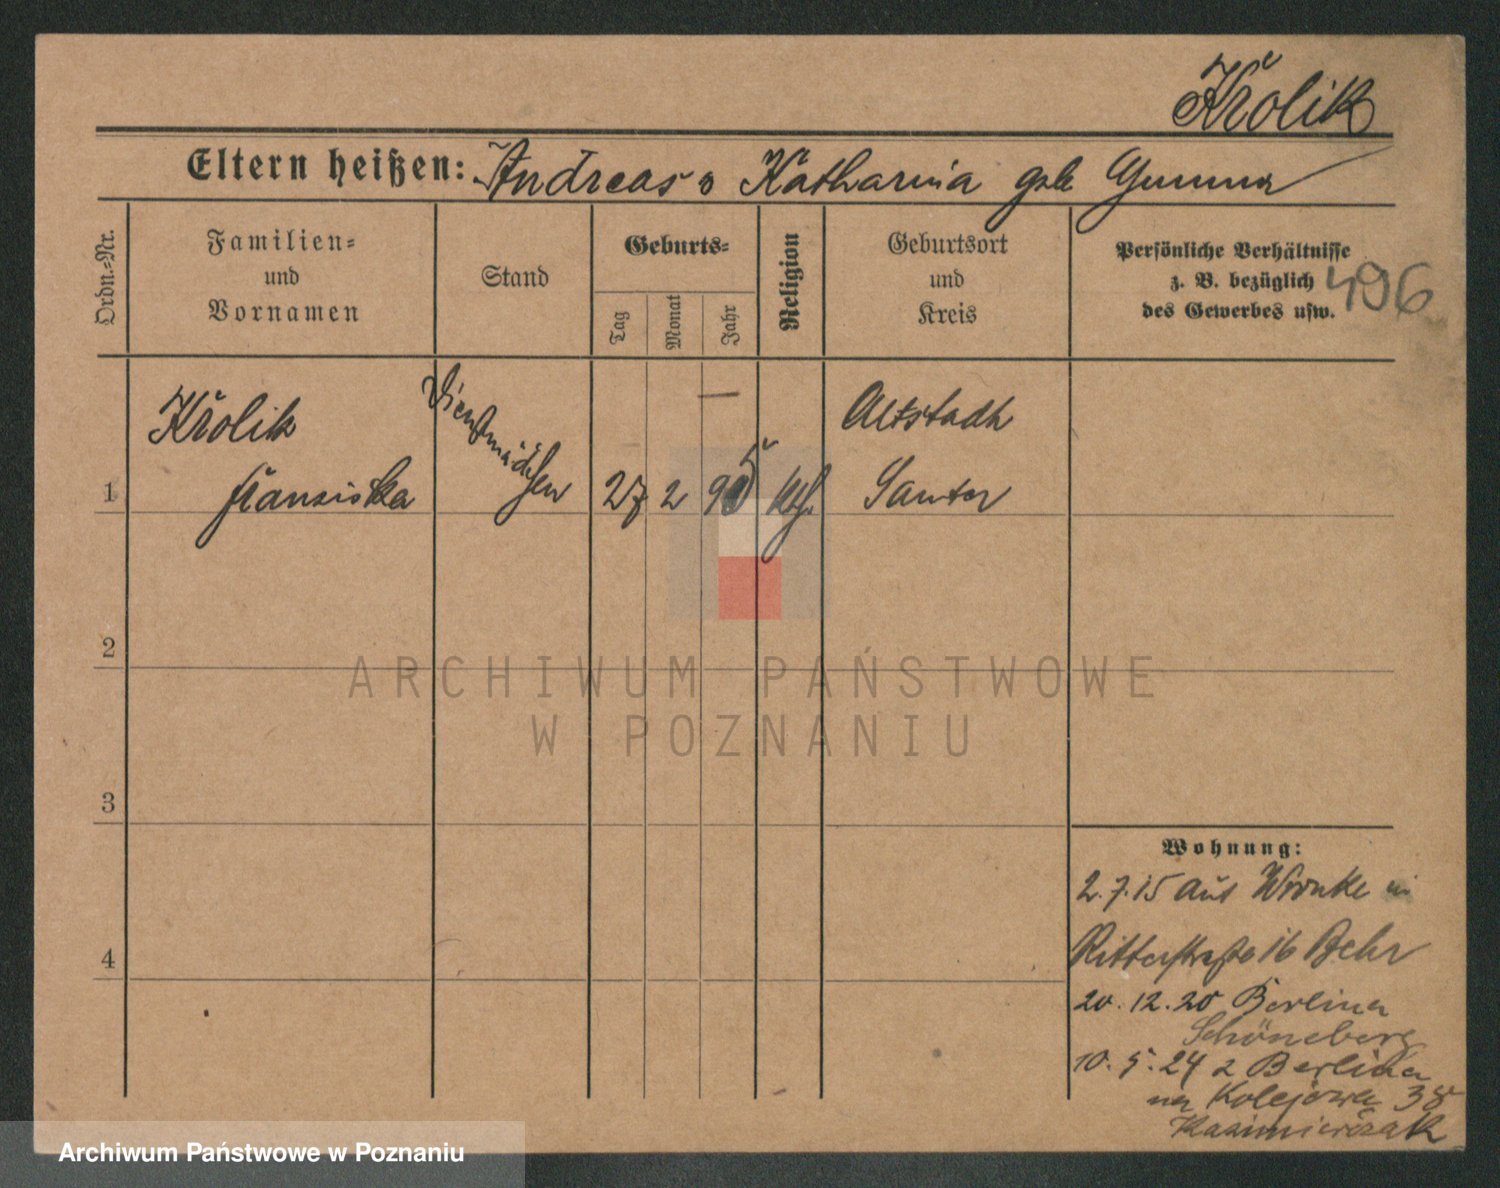 Królik
Eltern heißen: Andreas u Katharina geb Gumna
Ordn.=Nr.
Familien=
und
Vornamen
Stand
Geburts=
Tag
Monat
Jahr
Religion
Geburtsort
und
Kreis
Persönliche Verhältnisse
z. B. bezüglich
des Gewerbes usw.
496
1
Królik
Franziska
Dienstmädchen
27 2 95 kth.
Altstadt
Samter
2
3
4
Wohnung:
2.7.15 aus Wronke in
Ritterstraße 16 Behr
20.12.20 Berlina
Schöneberg
10.5.24 z Berlina
na Kolejowa 38
Kazimierczak
ARCHIWUM PAŃSTWOWE
W POZNANIU
Archiwum Państwowe w Poznaniu